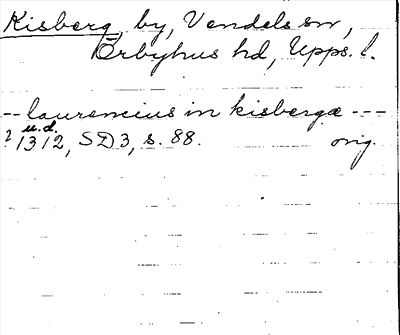 Kisberg, by, Vendels sn,
Örbyhus hd, Upps. l.
-- laurencius in kisbergæ ---
u.d.
? 1312, SD 3, s. 88. orig.